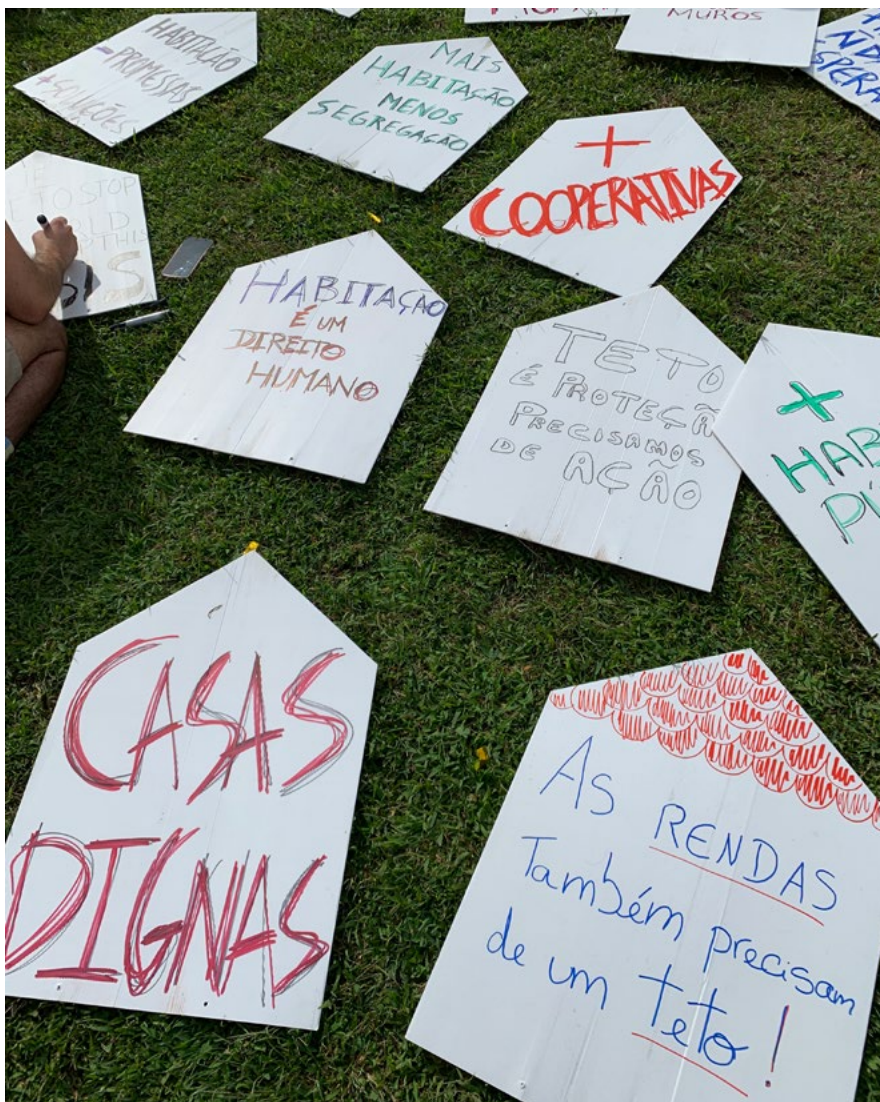 MUROS
HABITAÇÃO
- PROMESSAS
+ SOLUÇÕES
MAIS
HABITAÇÃO
MENOS
SEGREGAÇÃO
+
COOPERATIVAS
TO STOP
THIS
HABITAÇÃO
É UM
DIREITO
HUMANO
TETO
É PROTEÇÃ
PRECISAMOS
DE AÇÃO
+
HAB
CASAS
DIGNAS
As RENDAS
Também precisam
de um teto!